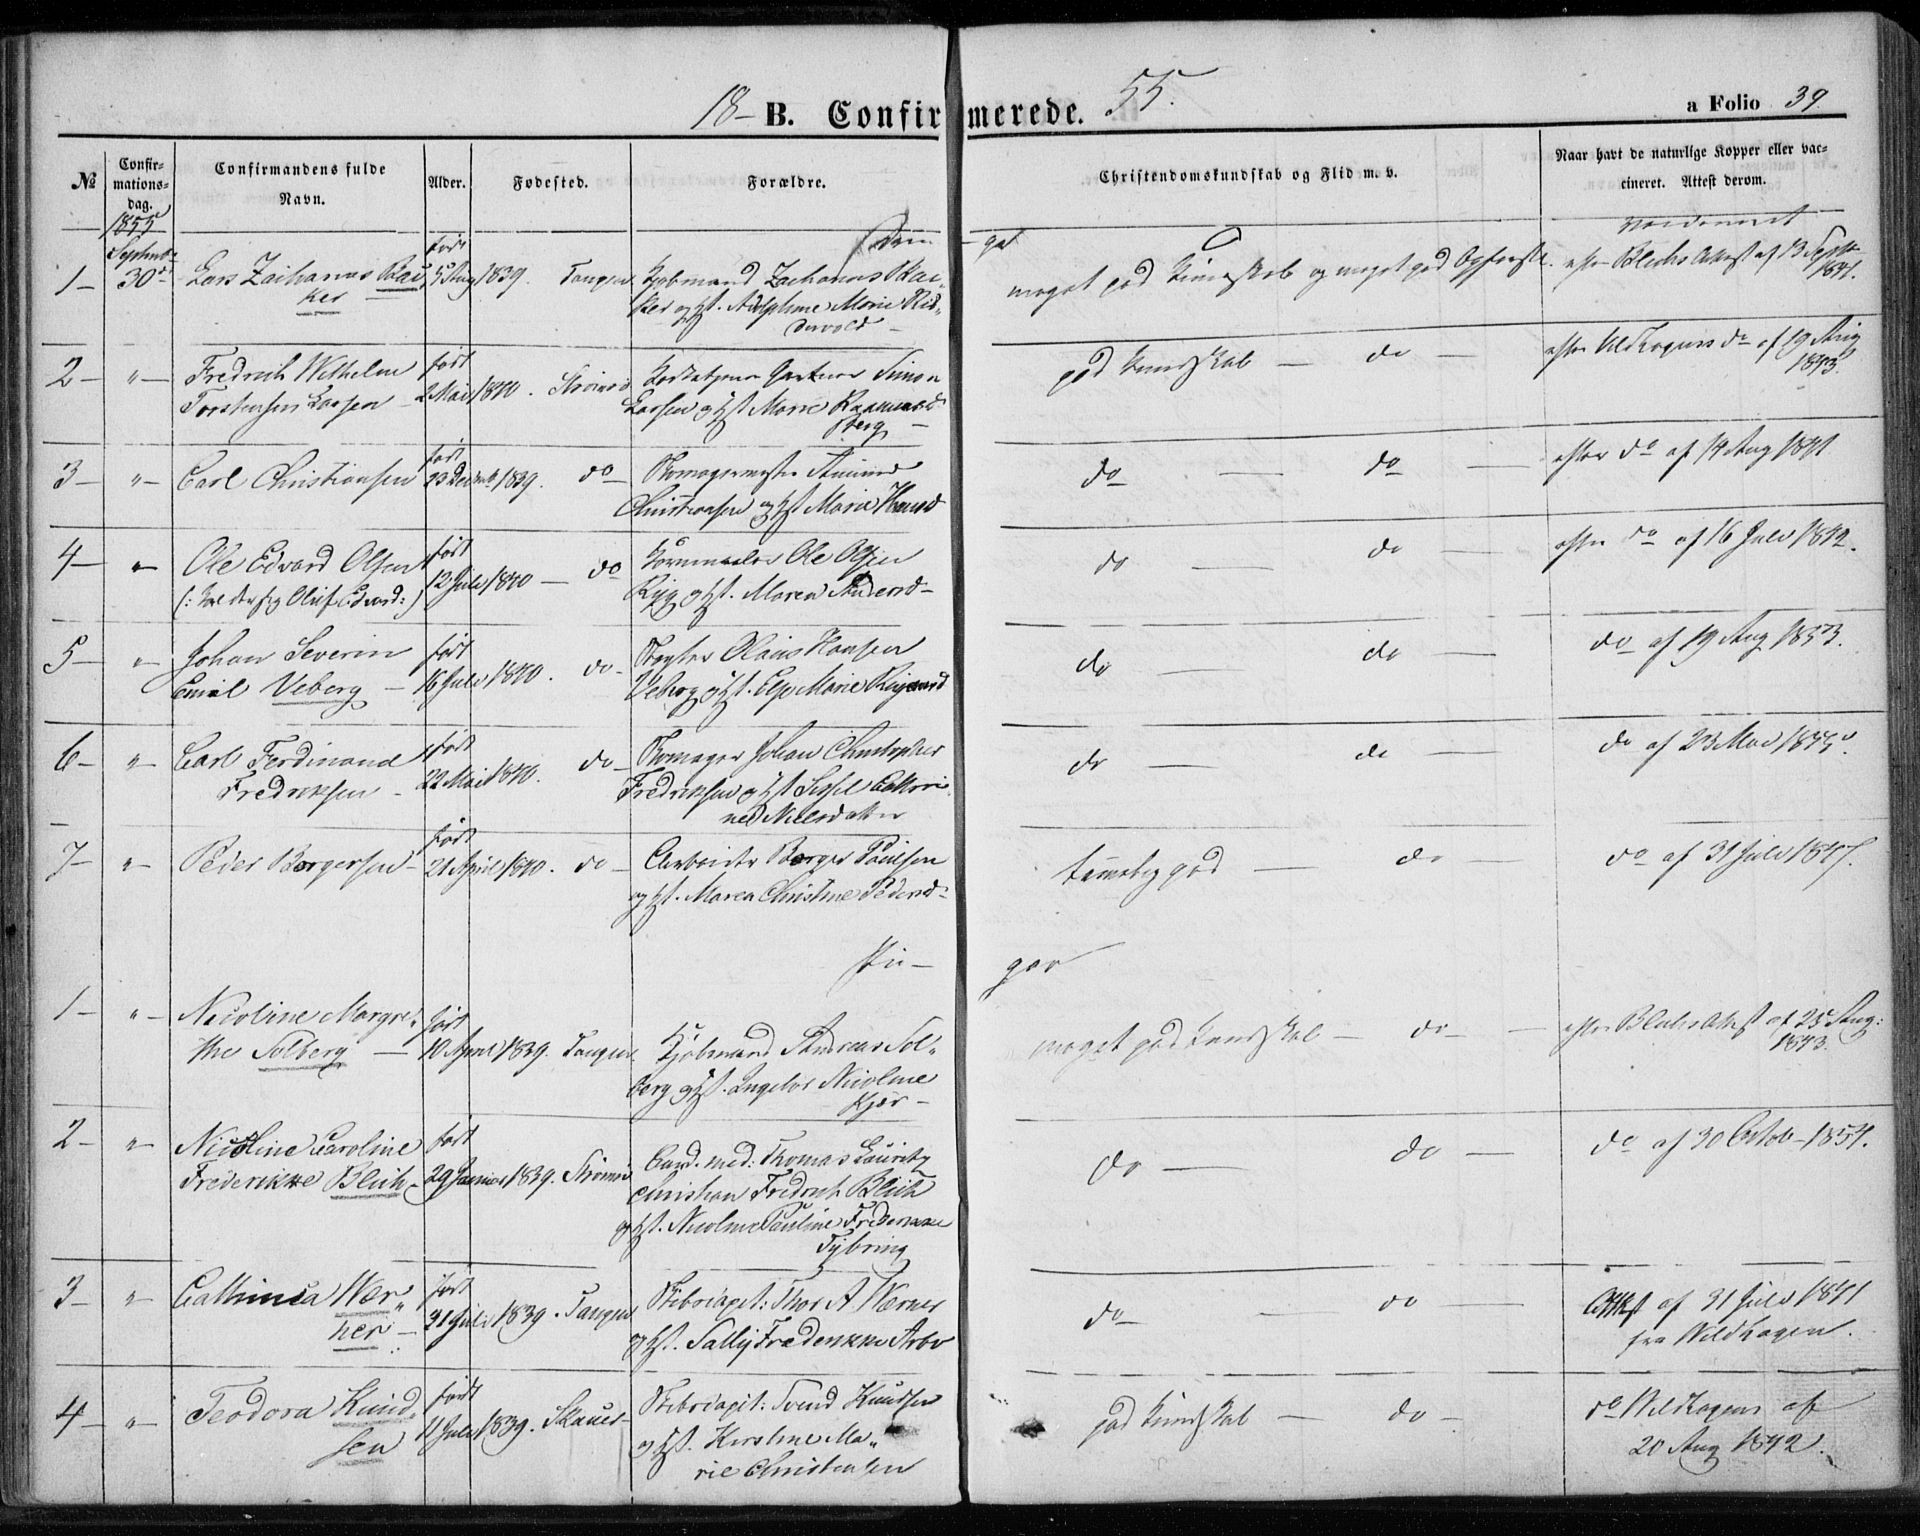 18- B. Confirmerede. 55.
a Folio 39
№
Confir-
mations-
dag.
Confirmandens fulde
Navn.
Alder.
Fødested.
Forældre.
Christendomskundskab og Flid m. v.
Naar havt de naturlige Kopper eller vac-
cineret. Attest derom.
1855
Dren- ge
1- Septemb. 30 Lars Zacharias
ker
født
5 Aug 1839. Tangen
Kjøbmand Zacharias
ker og H. Adolphine Marie Rid-
dervold -
meget god Kundskab og meget god Opførsel.
efter Blichs Attest af 13 Septb.
1841.
2- "- Fredrich Wilhelm
Torstensen Larsen -
født
2 Mai 1840. Strømsø
Gartner Simon
Larsen og H. Marie
berg -
god Kundskab - do -
efter Wildhagens do af 19 Aug
1843.
3- "- Carl Christiansen
født
23 Decemb. 1839. do
Skomagermester
Christiansen og H. Maria
do - do -
efter do af 14 Aug 1841
4- "- Ole Edvard Olsen
(: Oluf Edvard:)
født
12 Juli 1840 - do
Ole Olsen
Ryg og H. Maren
do - do -
efter do af 16 Juli 1842.
5- "- Johan Severin
Emil Veberg -
født
16 Juli 1840. do-
Olaus Hansen
Veberg og H. Else Marie
do - do -
do af 19 Aug 1853.
6- "- Carl Ferdinand
Fredriksen -
født
22 Mai 1840. do-
Skomager Johan Christopher
Fredriksen og H. Sissel Cathri-
ne Nielsdatter
do - do -
do af 23 Mai
7- "- Peder Børgersen -
født
21 April 1840. do -
Arbeider Børger Paulsen
og H. Maren Christine Pedersd-
temmelig god - do -
do af 31 Juli
Pi- ger
1- "- Nicoline Margre-
the Solberg -
født
10 April 1839. Tangen
Kjøbmand Andreas Sol-
berg og H. Ingebor Nicoline
Kjær -
meget god Kundskab - do -
efter Blichs Attest af 25 Aug:
1843.
2- "- Nicoline Caroline
Frederikke Blich -
født
29 Januar 1839. Strømsø
Cand. med: Thomas Lauritz
Christian Fredrich Blich
og H. Nicoline Pauline Frederikke
Tybring
do - do -
do af 30 Octob- 1854.
3- "- Cathinca Wær-
ner -
født
21 Juli 1839. Tangen
Skibscapt: Thor A. Wærner
og H. Sally Frederikke Arbo
do - do -
Attest af 31 Juli 1841
fra Wildhagen.
4- "- Teodora Knud-
sen
født
11 Juli 1839.
Skibscapit: Svend Knudsen
og H. Kirstine Ma-
rie Christensen
god Kundskab - do -
do Wildhagens af
20 Aug 1842.